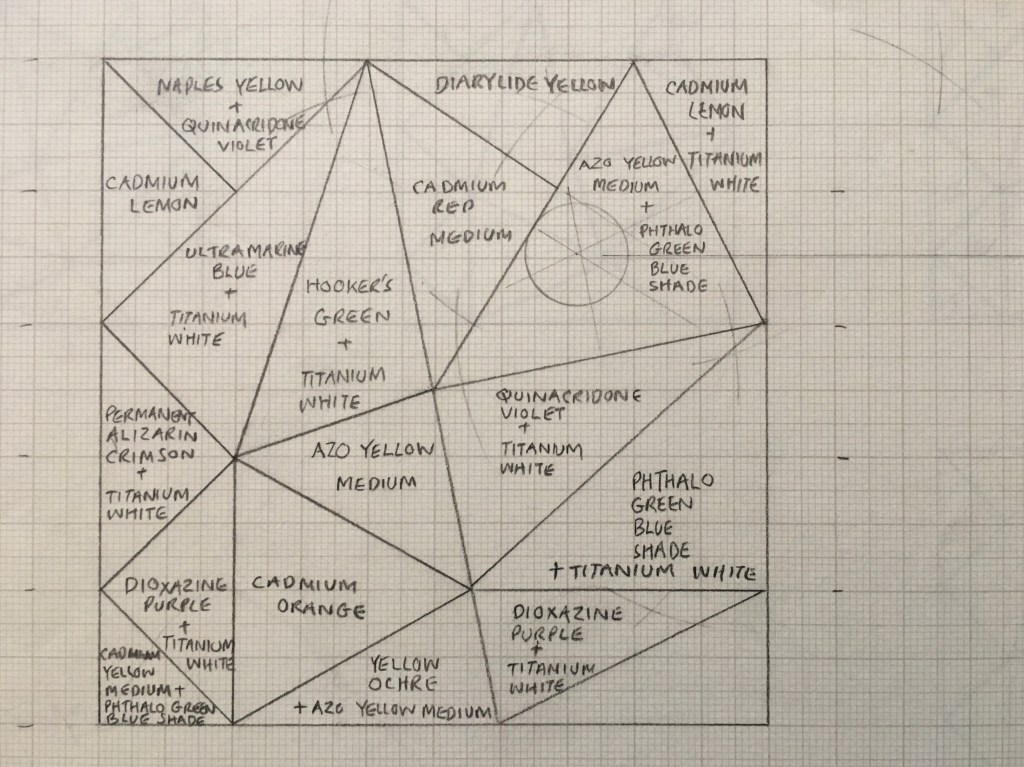 NAPLES YELLOW
+
QUINACRIDONE
VIOLET
DIARYLIDE YELLOW
CADMIUM
LEMON
+
TITANIUM
WHITE
CADMIUM
LEMON
ULTRAMARINE
BLUE
+
TITANIUM
WHITE
HOOKER'S
GREEN
+
TITANIUM
WHITE
CADMIUM
RED
MEDIUM
AZO YELLOW
MEDIUM
+
PHTHALO
GREEN
BLUE
SHADE
PERMANENT
ALIZARIN
CRIMSON
+
TITANIUM
WHITE
AZO YELLOW
MEDIUM
QUINACRIDONE
VIOLET
+
TITANIUM
WHITE
PHTHALO
GREEN
BLUE
SHADE
+ TITANIUM WHITE
DIOXAZINE
PURPLE
+
TITANIUM
WHITE
CADMIUM
ORANGE
DIOXAZINE
PURPLE
+
TITANIUM
WHITE
CADMIUM
YELLOW
MEDIUM +
PHTHALO GREEN
BLUE SHADE
YELLOW
OCHRE
+ AZO YELLOW MEDIUM